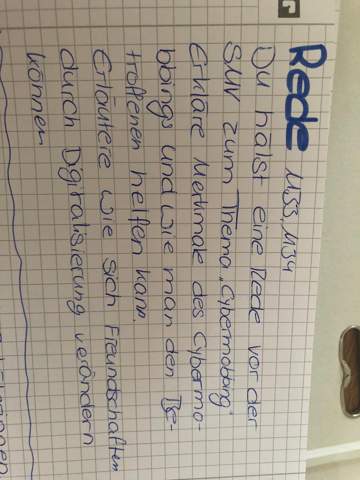 Rede M33, M34
Du hälst eine Rede vor der
SMV zum Thema „Cybermobbing"
Erkläre Merkmale des Cybermo-
bbings und wie man den Be-
troffenen helfen kann.
Erläutere wie sich Freundschaften
durch Digitalisierung verändern
können